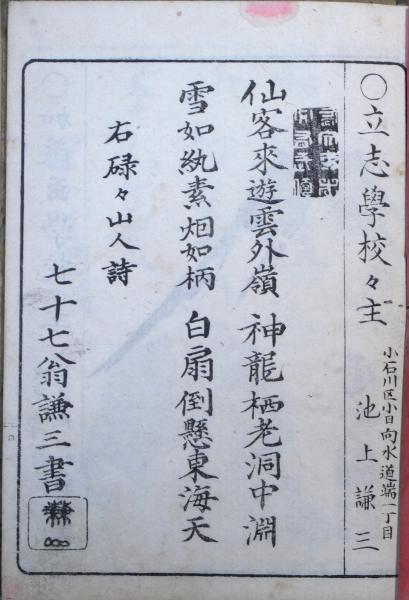 〇立志學校々主
小石川区小日向水道端一丁目
池上謙三
仙客來遊雲外嶺　神龍栖老洞中淵
雪如紈素烟如柄　白扇倒懸東海天
右碌々山人詩
七十七翁謙三書